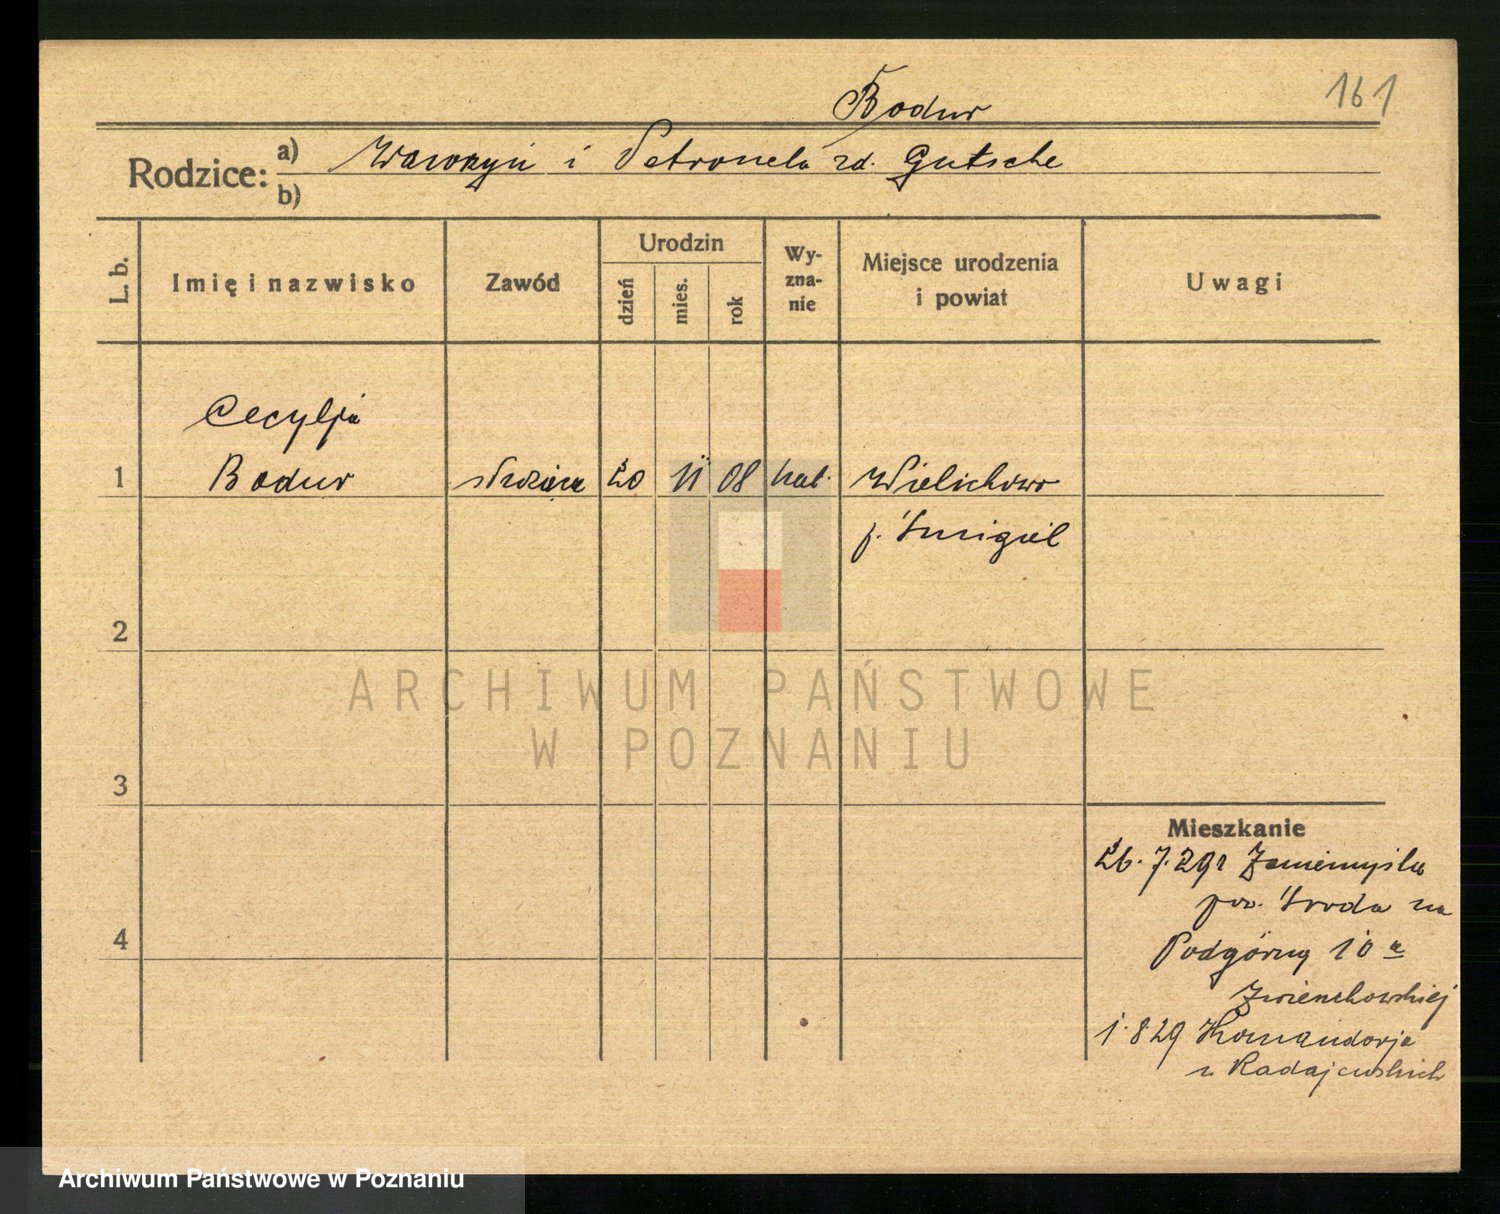 161
Bodur
Rodzice: a) Wawrzyn i Petronela zd. Gutsche
b)
L. b. Imię i nazwisko Zawód Urodzin dzień mies. rok Wyzna-nie Miejsce urodzenia i powiat Uwagi
Cecylja
1 Bodur 20 11 08 kat. Wielichowo
p. Śmigiel
2
ARCHIWUM PAŃSTWOWE
W POZNANIU
3
Mieszkanie
26. 7. 29 z Zaniemyśla
pow. Środa na
4 Podgórną 10 a
1. 8 29 Komandorja
u Radajewskich
Archiwum Państwowe w Poznaniu